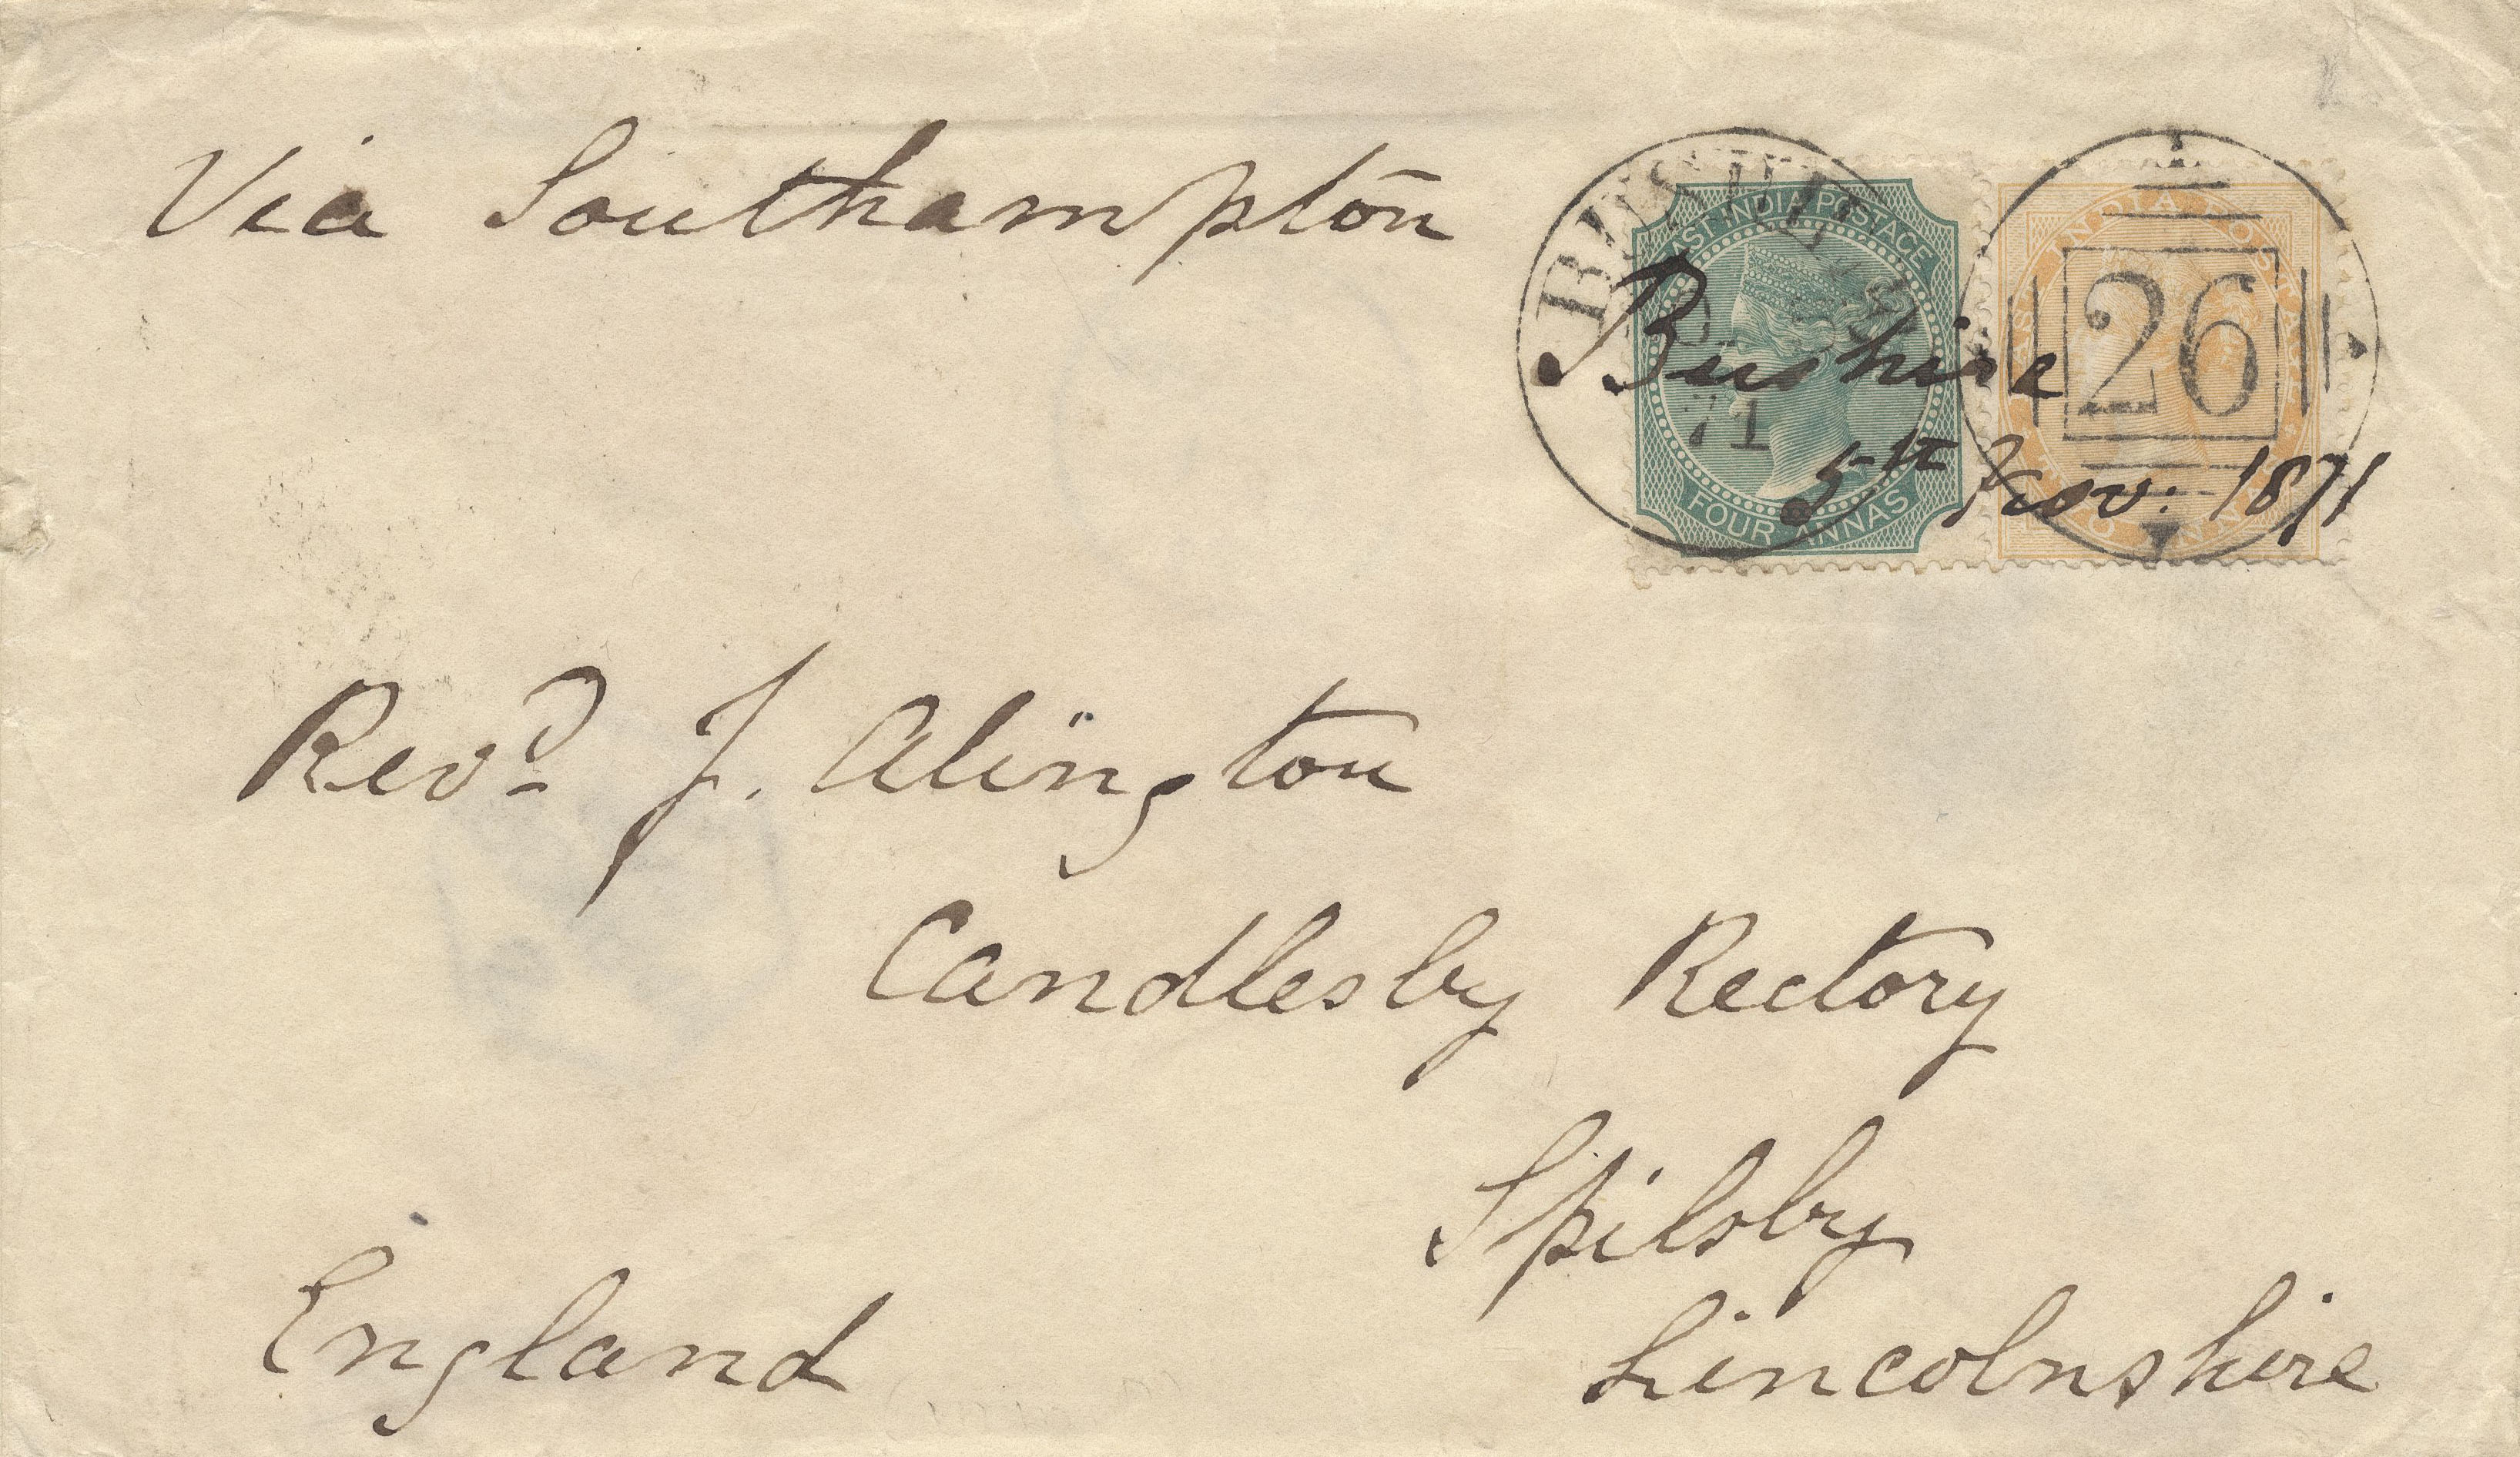 Via Southampton
BUSHIRE
71
EAST INDIA POSTAGE
FOUR ANNAS
INDIA POSTAGE
26
Bushire
5th Nov. 1871
Revd. J. Alington
Candlesby Rectory
Spilsby
Lincolnshire
England